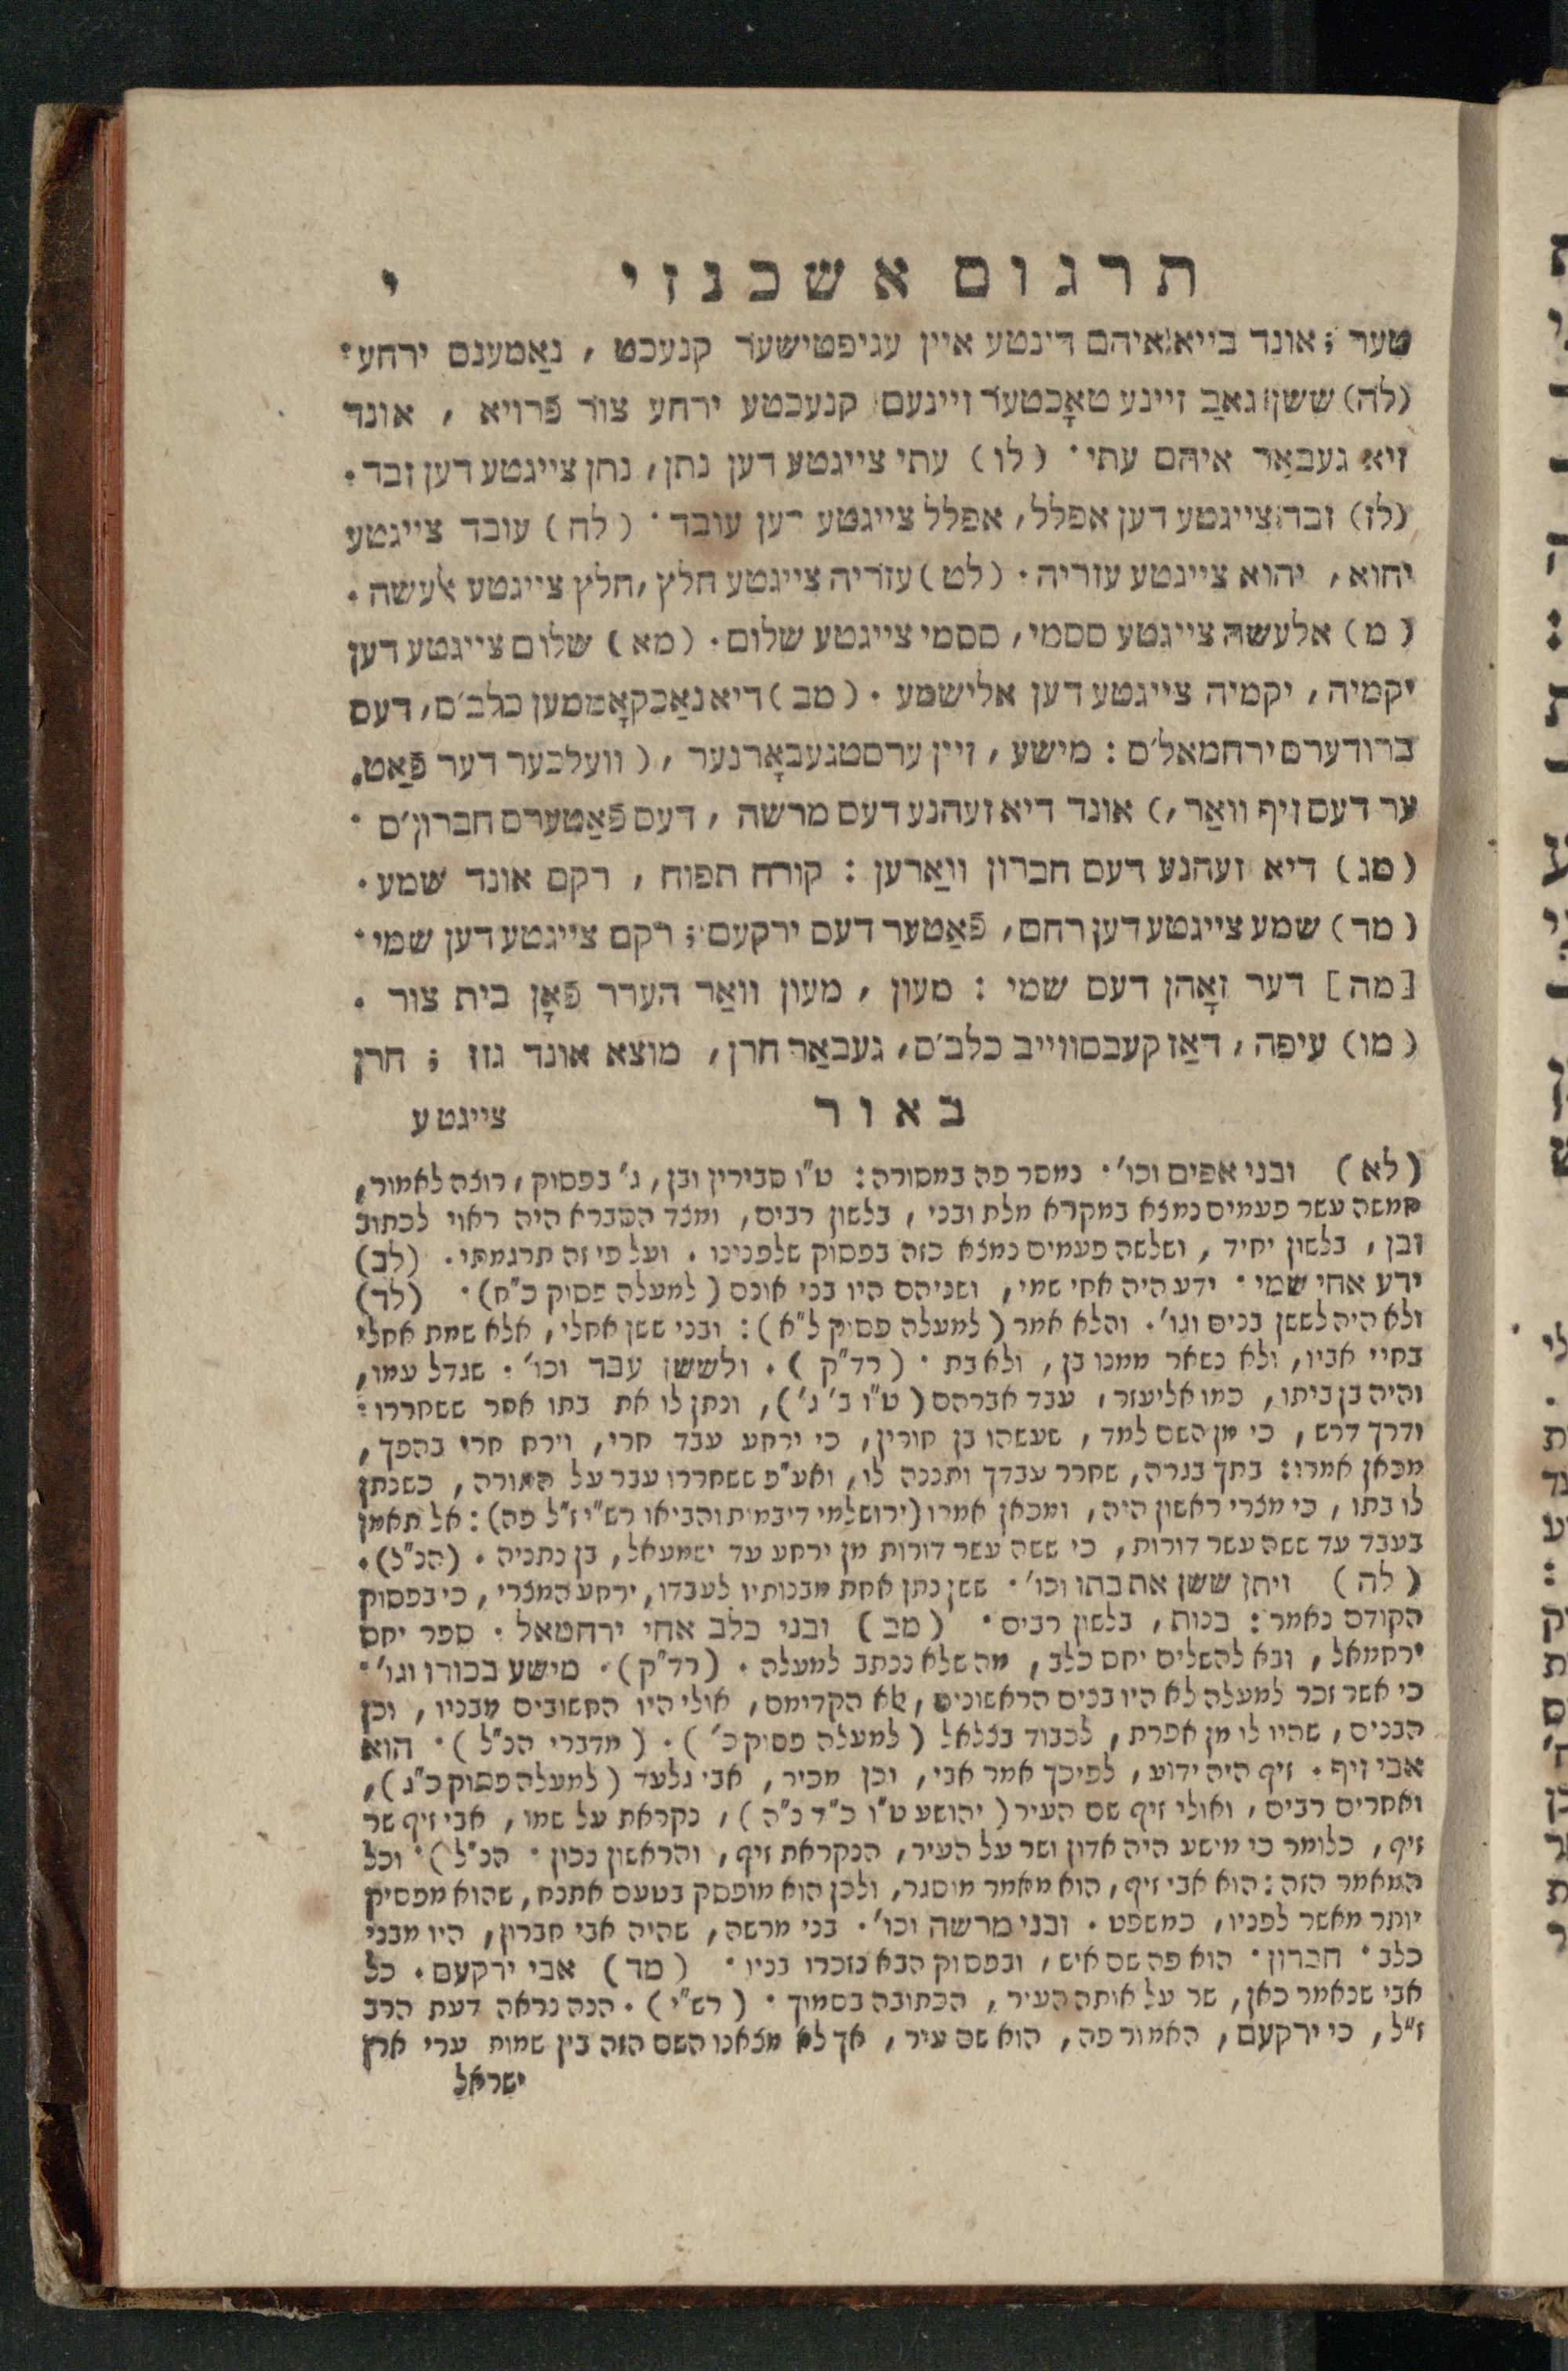 תרגום אשכנזי י
טער ; אונד בייא איהם דינטע איין עגיפטישער קנעכט , נאַמענס ירחע :
(לה) ששן גאבַ זיינע טאָכטער זיינעם קנעכטע ירחע צור פֿרויא , אונד
זיא געבאַר איהם עתי · (לו) עתי צייגטע דען נתן , נתן צייגטע דען זבד .
(לז) זבד צייגטע דען אפלל , אפלל צייגטע דען עובד · (לח) עובד צייגטע
יהוא , יהוא צייגטע עזריה . (לט) עזריה צייגטע חלץ , חלץ צייגטע אלעשה .
(מ) אלעשה צייגטע ססמי , ססמי צייגטע שלום . (מא) שלום צייגטע דען
יקמיה , יקמיה צייגטע דען אלישמע . (מב) דיא נאַכקאָממען כלב׳ס , דעס
ברודערס ירחמאל׳ס : מישע , זיין ערסטגעבאָרנער , (וועלכער דער פֿאַט.
ער דעס זיף וואַר ,) אונד דיא זעהנע דעס מרשה , דעס פֿאַטערס חברון׳ס ·
(מג) דיא זעהנע דעס חברון וואַרען : קורח תפוח , רקם אונד שמע .
(מד) שמע צייגטע דען רחם , פֿאַטער דעס ירקעם ; רקם צייגטע דען שמי ·
[מה] דער זאָהן דעס שמי : מעון , מעון וואַר הערר פֿאָן בית צור .
(מו) עיפה , דאַז קעבסווייב כלב׳ס , געבאַר חרן , מוצא אונד גזז ; חרן
באור צייגטע
(לא) ובני אפים וכו׳ · נמסר פה במסורה : ט״ו סבירין ובן , ג׳ בפסוק , רוצה לאמור ,
חמשה עשר פעמים נמצא במקרא מלת ובני , בלשון רבים , ומצד הסברא היה ראוי לכתוב
ובן , בלשון יחיד , ושלשה פעמים נמצא כזה בפסוק שלפנינו . ועל פי זה תרגמתי . (לב)
ידע אחי שמי · ידע היה אחי שמי , ושניהם היו בני אונם (למעלה פסוק כ״ח) · (לד)
ולא היה לששן בנים וגו׳ . והלא אמר (למעלה פסוק ל״א) : ובני ששן אחלי , אלא שמת אחלי
בחיי אביו , ולא נשאר ממנו בן , ולא בת · (רד״ק) . ולששן עבד וכו׳ . שגדל עמו ,
והיה בן ביתו , כמו אליעזר , עבד אברהם (ט״ו ב׳ ג׳) , ונתן לו את בתו אחר ששחררו :
ודרך דרש , כי מן השם למד , שעשהו בן חורין , כי ירחע עבד חרי , וירח חרי בהפך ,
מכאן אמרו : בתך בגרה , שחרר עבדך ותננה לו , ואע״פ ששחררו עבר על התורה , כשנתן
לו בתו , כי מצרי ראשון היה , ומכאן אמרו (ירושלמי דיבמות והביאו רש״י ז״ל פה) : אל תאמן
בעבד עד ששה עשר דורות , כי ששה עשר דורות מן ירחע עד ישמעאל , בן נתניה . (הנ״ל) .
(לה) ויתן ששן את בתו וכו׳ · ששן נתן אחת מבנותיו לעבדו , ירחע המצרי , כי בפסוק
הקודם נאמר : בנות , בלשון רבים · (מב) ובני כלב אחי ירחמאל . ספר יחס
ירחמאל , ובא להשלים יחס כלב , מה שלא נכתב למעלה . (רד״ק) . מישע בכורו וגו׳ ·
כי אשר זכר למעלה לא היו בנים הראשונים , לא הקדימם , אולי היו החשובים מבניו , וכן
הבנים , שהיו לו מן אפרת , לכבוד בצלאל (למעלה פסוק כ׳) . (מדברי הנ״ל) · הוא
אבי זיף . זיף היה ידוע , לפיכך אמר אבי , וכן מכיר , אבי גלעד (למעלה פסוק כ״ג) ,
ואחרים רבים , ואולי זיף שם העיר (יהושע ט״ו כ״ד נ״ה) , נקראת על שמו , אבי זיף שר
זיף , כלומר כי מישע היה אדון ושר על העיר , הנקראת זיף , והראשון נכון · הנ״ל) · וכל
המאמר הזה : הוא אבי זיף , הוא מאמר מוסגר , ולכן הוא מופסק בטעם אתנח , שהוא מפסיק
יותר מאשר לפניו , כמשפט . ובני מרשה וכו׳ . בני מרשה , שהיה אבי חברון , היו מבני
כלב · חברון · הוא פה שם איש , ובפסוק הבא נזכרו בניו · (מד) אבי ירקעם . כל
אבי שנאמר כאן , שר על אותה העיר , הכתובה בסמוך · (רש״י) . הנה נראה דעת הרב
ז״ל , כי ירקעם , האמור פה , הוא שם עיר , אך לא מצאנו השם הזה בין שמות ערי ארץ
ישראל